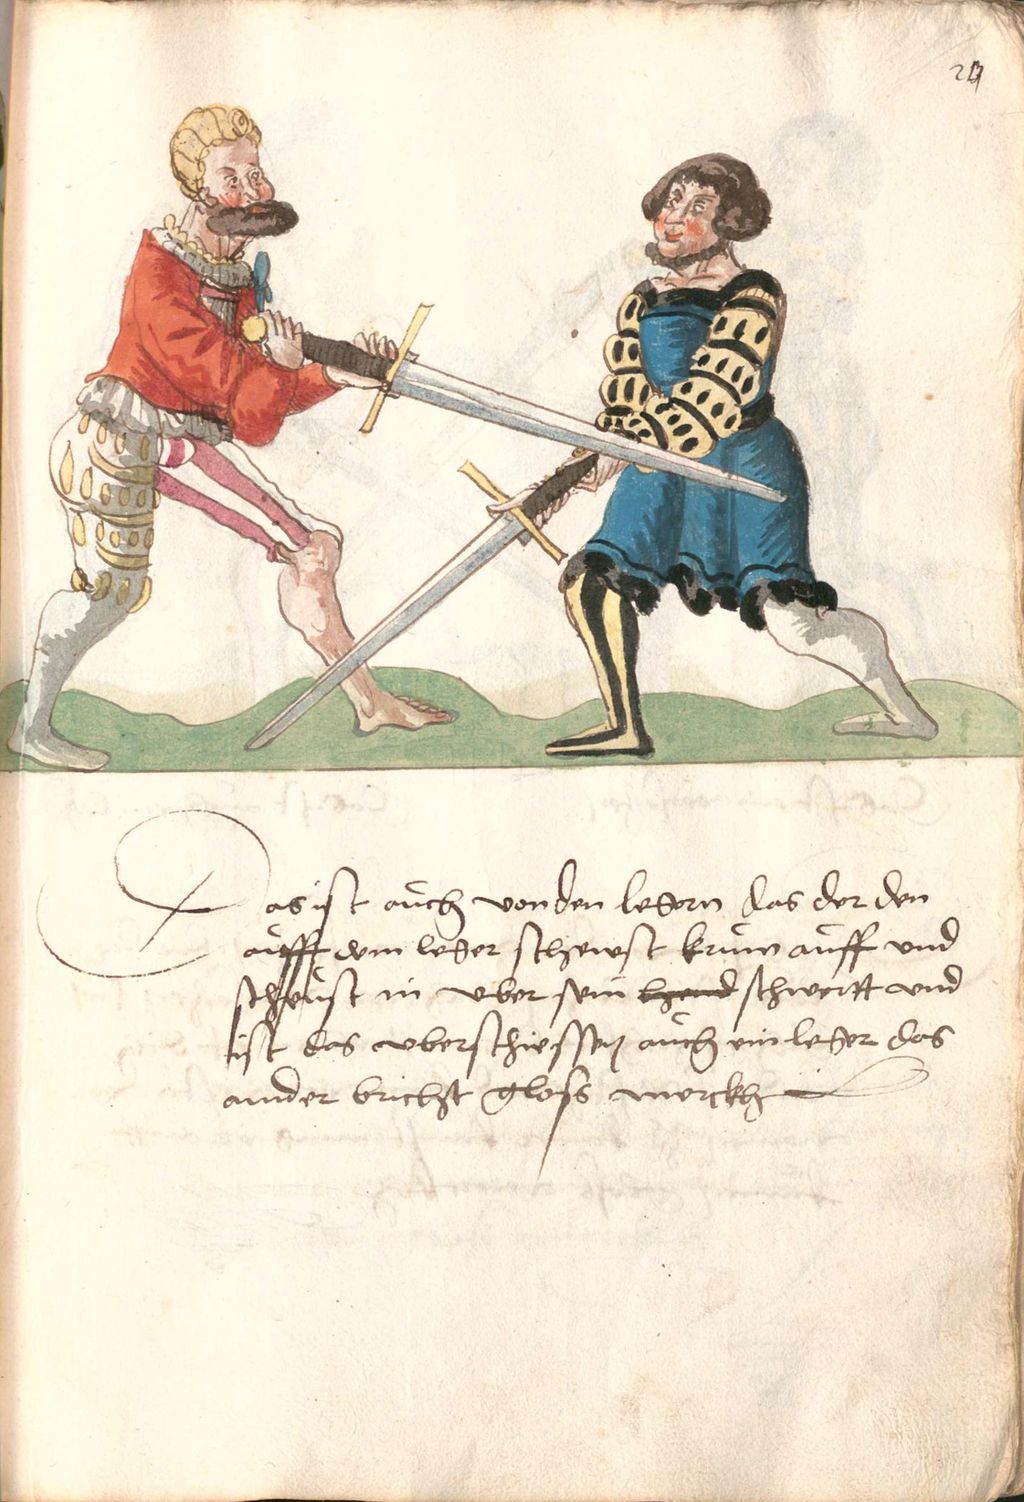 24
Das ist auch von den legern das der den
aufff dem leger schewst krum auff und
scheust in uber sein hend schwertt und
ist das uberschiessen auch ein leger das
ander bricht gloss merckh